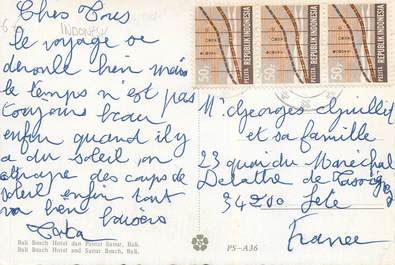 Chers Tous
INDONESIE
le voyage se
déroule bien mais
le temps n'est pas
toujours beau
enfin quand il y
a du soleil, on
attrape des coups de
soleil enfin tout
va bien baisers
50r
PELITA
REPUBLIK INDONESIA
50r
PELITA
REPUBLIK INDONESIA
50r
PELITA
REPUBLIK INDONESIA
Mr Georges Guillet
et sa famille
23 quai du Maréchal
Delattre de Tassigny
34200 Sete
France
Bali Beach Hotel dan Pantai Sanur, Bali.
Bali Beach Hotel and Sanur Beach, Bali.
PS-A36